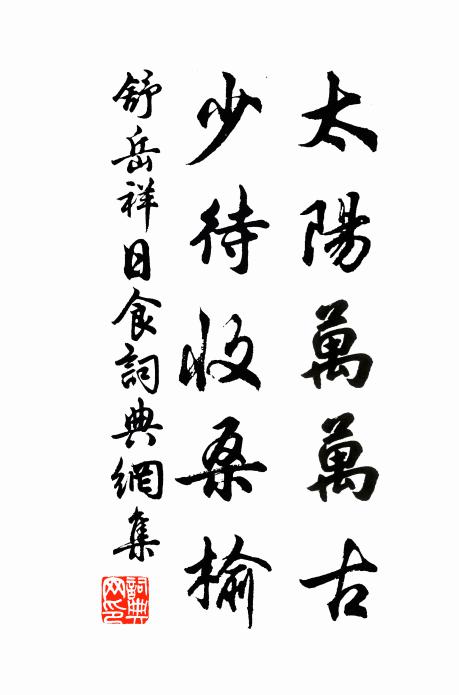 太陽萬萬古
少待收桑榆
舒岳祥日食詞典網集
詞典網印